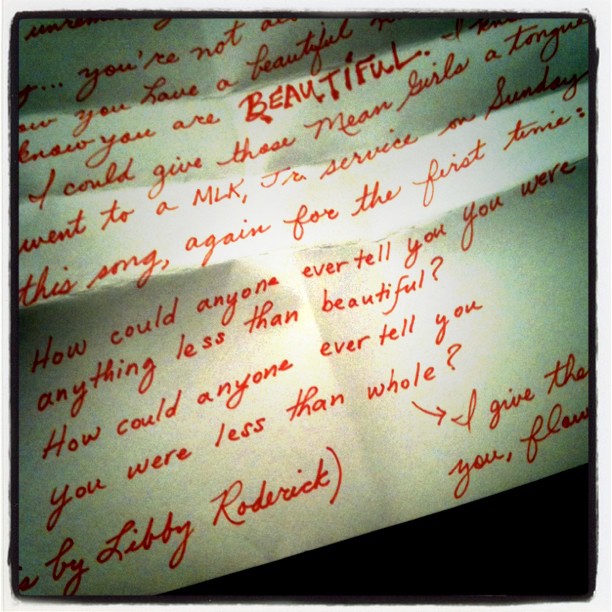 y... you're not
you have a beautiful
know you are BEAUTIFUL. I
I could give those Mean Girls a tongue
went to a MLK, Jr. service on Sunday
this song, again for the first time:
How could anyone ever tell you you were
anything less than beautiful?
How could anyone ever tell you
you were less than whole?
→ I give the
you,
by Libby Roderick)